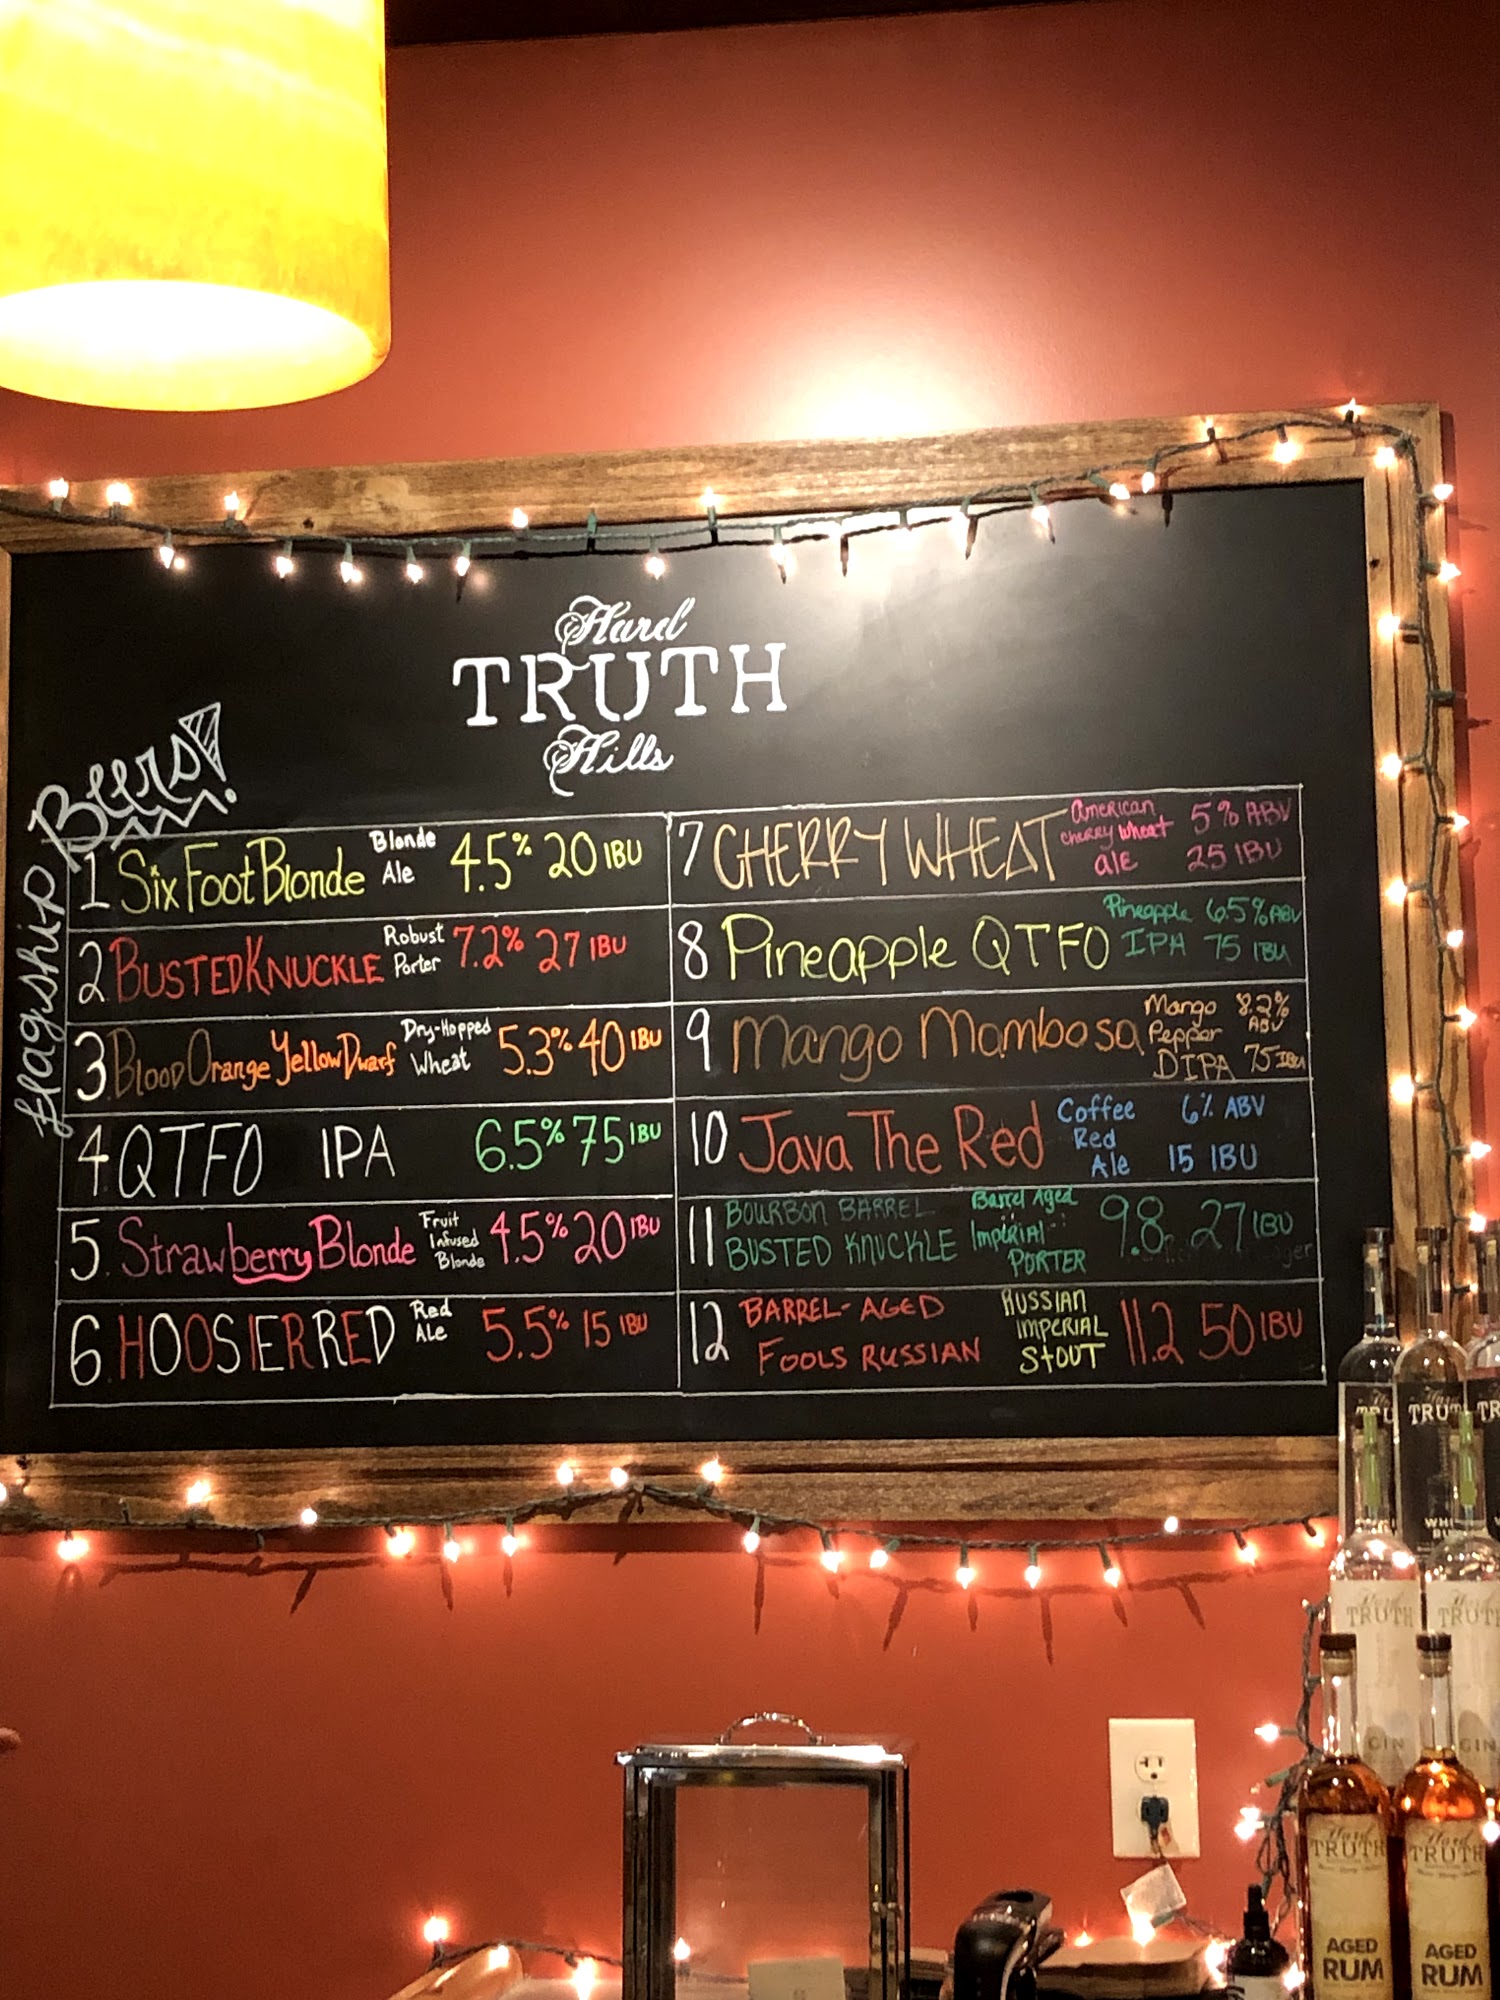 Hard
TRUTH
Hills
flagship Beers!
1 Six Foot Blonde Blonde Ale 4.5% 20 IBU
2. BUSTED KNUCKLE Robust Porter 7.2% 27 IBU
3. Blood Orange Yellow Dwarf Dry-Hopped Wheat 5.3% 40 IBU
4. QTFO IPA 6.5% 75 IBU
5. Strawberry Blonde Fruit Infused Blonde 4.5% 20 IBU
6. HOOSIER RED Red Ale 5.5% 15 IBU
7 CHERRY WHEAT American cherry wheat ale 5% ABV 25 IBU
8 Pineapple QTFO Pineapple IPA 6.5% ABV 75 IBU
9 Mango Mambosa Mango Pepper DIPA 8.2% ABV 75 IBU
10 Java The Red Coffee Red Ale 6% ABV 15 IBU
11 BOURBON BARREL BUSTED KNUCKLE Barrel Aged Imperial PORTER 9.8 27 IBU
12 BARREL-AGED FOOLS RUSSIAN RUSSIAN IMPERIAL STOUT 11.2 50 IBU
TRUTH
TRUTH
TRUTH
GIN
GIN
Hard
TRUTH
AGED
RUM
Hard
TRUTH
AGED
RUM